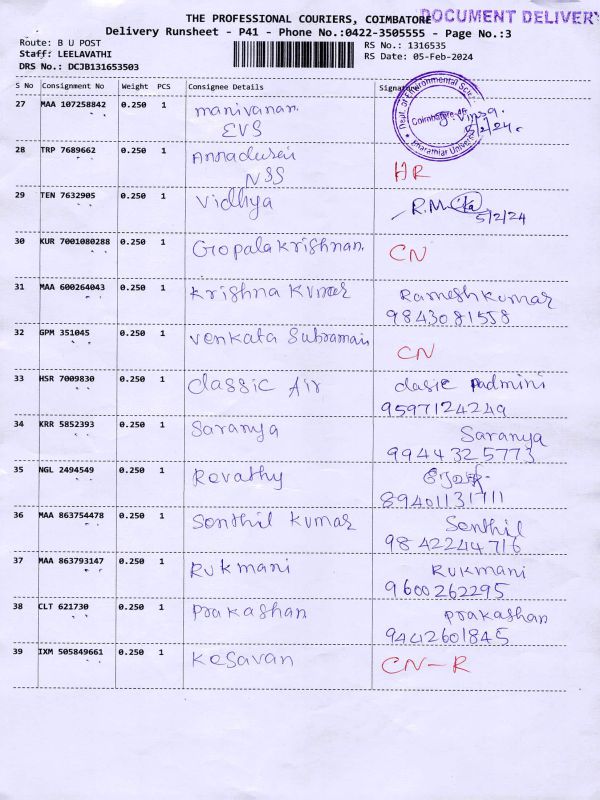 THE PROFESSIONAL COURIERS, COIMBATORE
DOCUMENT DELIVERY
Delivery Runsheet - P41 - Phone No.:0422-3505555 - Page No.:3
Route: B U POST
RS No.: 1316535
Staff: LEELAVATHI
RS Date: 05-Feb-2024
DRS No.: DCJB131653503
S No Consignment No Weight PCS Consignee Details Signature
27 MAA 107258842 0.250 1 manivanan
EVS
Dept. of Environmental Scie
Coimbatore-46
Bharathiar Univers
5/2/24.
28 TRP 7689662 0.250 1 Annadurai
NSS HR
29 TEN 7632905 0.250 1 Vidhya R.M.
5/2/24
30 KUR 7001080288 0.250 1 Gopalakrishnan. CN
31 MAA 600264043 0.250 1 Krishna Kumar Rameshkumar
9843081558
32 GPM 351045 0.250 1 Venkata Subramani CN
33 HSR 7009830 0.250 1 Classic Air clasic Padmini
9597124249
34 KRR 5852393 0.250 1 Saranya Saranya
9944325773
35 NGL 2494549 0.250 1 Revathy
89401131711
36 MAA 863754478 0.250 1 Senthil Kumar Senthil
9842244716
37 MAA 863793147 0.250 1 Rukmani Rukmani
9600262295
38 CLT 621730 0.250 1 Prakashan Prakashan
9442601845
39 IXM 505849661 0.250 1 Kesavan CN-R